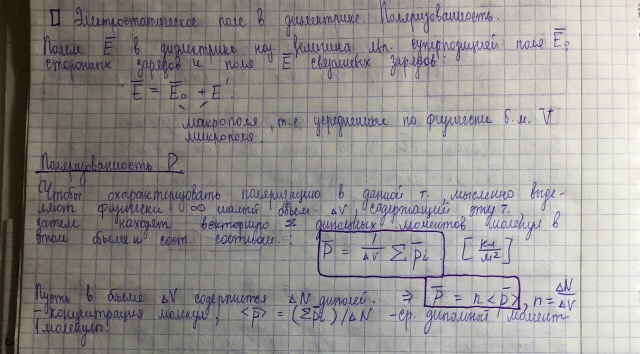 Электростатическое поле в диэлектрике. Поляризованность.
Полем E̅ в диэлектрике наз. величина, явл. суперпозицией поля E̅₀
сторонних зарядов и поля E̅' связанных зарядов:
E̅ = E̅₀ + E̅'
макрополя, т.е. усредненные по физически б.м. V
микрополя.
Поляризованность P̅
Чтобы охарактеризовать поляризацию в данной т. мысленно выде-
ляют физически ∞ малый объем ΔV, содержащий эту т.,
затем находят векторную Σ дипольных моментов молекул в
этом объеме и сост. соотнош.: P̅ = 1/ΔV Σ p̅ᵢ [Кл/м²]
Пусть в объеме ΔV содержится ΔN диполей. ⇒ P̅ = n<p̅>, n = ΔN/ΔV
- концентрация молекул, <p̅> = (Σp̅ᵢ)/ΔN - ср. дипольный момент
1 молекулы.